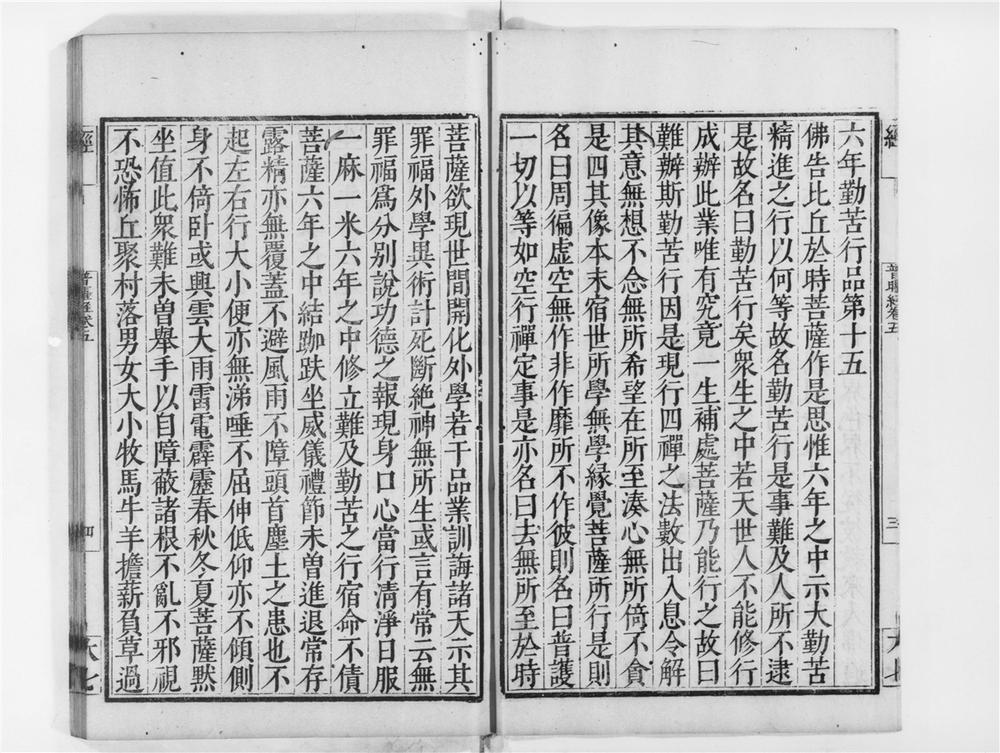 六年勤苦行品第十五
佛告比丘於時菩薩作是思惟六年之中示大勤苦
精進之行以何等故名勤苦行是事難及人所不逮
是故名曰勤苦行矣衆生之中若天世人不能修行
成辦此業唯有究竟一生補處菩薩乃能行之故曰
難辦斯勤苦行因是現行四禪之法數出入息令解
其意無想不念無所希望在所至湊心無所倚不貪
是四其像本末宿世所學無學緣覺菩薩所行是則
名曰周徧虛空無作非作靡所不作彼則名曰普護
一切以等如空行禪定事是亦名曰去無所至於時
菩薩欲現世間開化外學若干品業訓誨諸天示其
罪福外學異術計死斷絶神無所生或言有常云無
罪福爲分别說功德之報現身口心當行清淨日服
一麻一米六年之中修立難及勤苦之行宿命不債
菩薩六年之中結跏趺坐威儀禮節未曾進退常存
露精亦無覆蓋不避風雨不障頭首塵土之患也不
起左右行大小便亦無涕唾不屈伸低仰亦不傾側
身不倚卧或興雲大雨雷電霹靂春秋冬夏菩薩默
坐值此衆難未曾舉手以自障蔽諸根不亂不邪視
不恐怖丘聚村落男女大小牧馬牛羊擔薪負草過
經
普曜經卷五
三
經
普曜經卷五
四